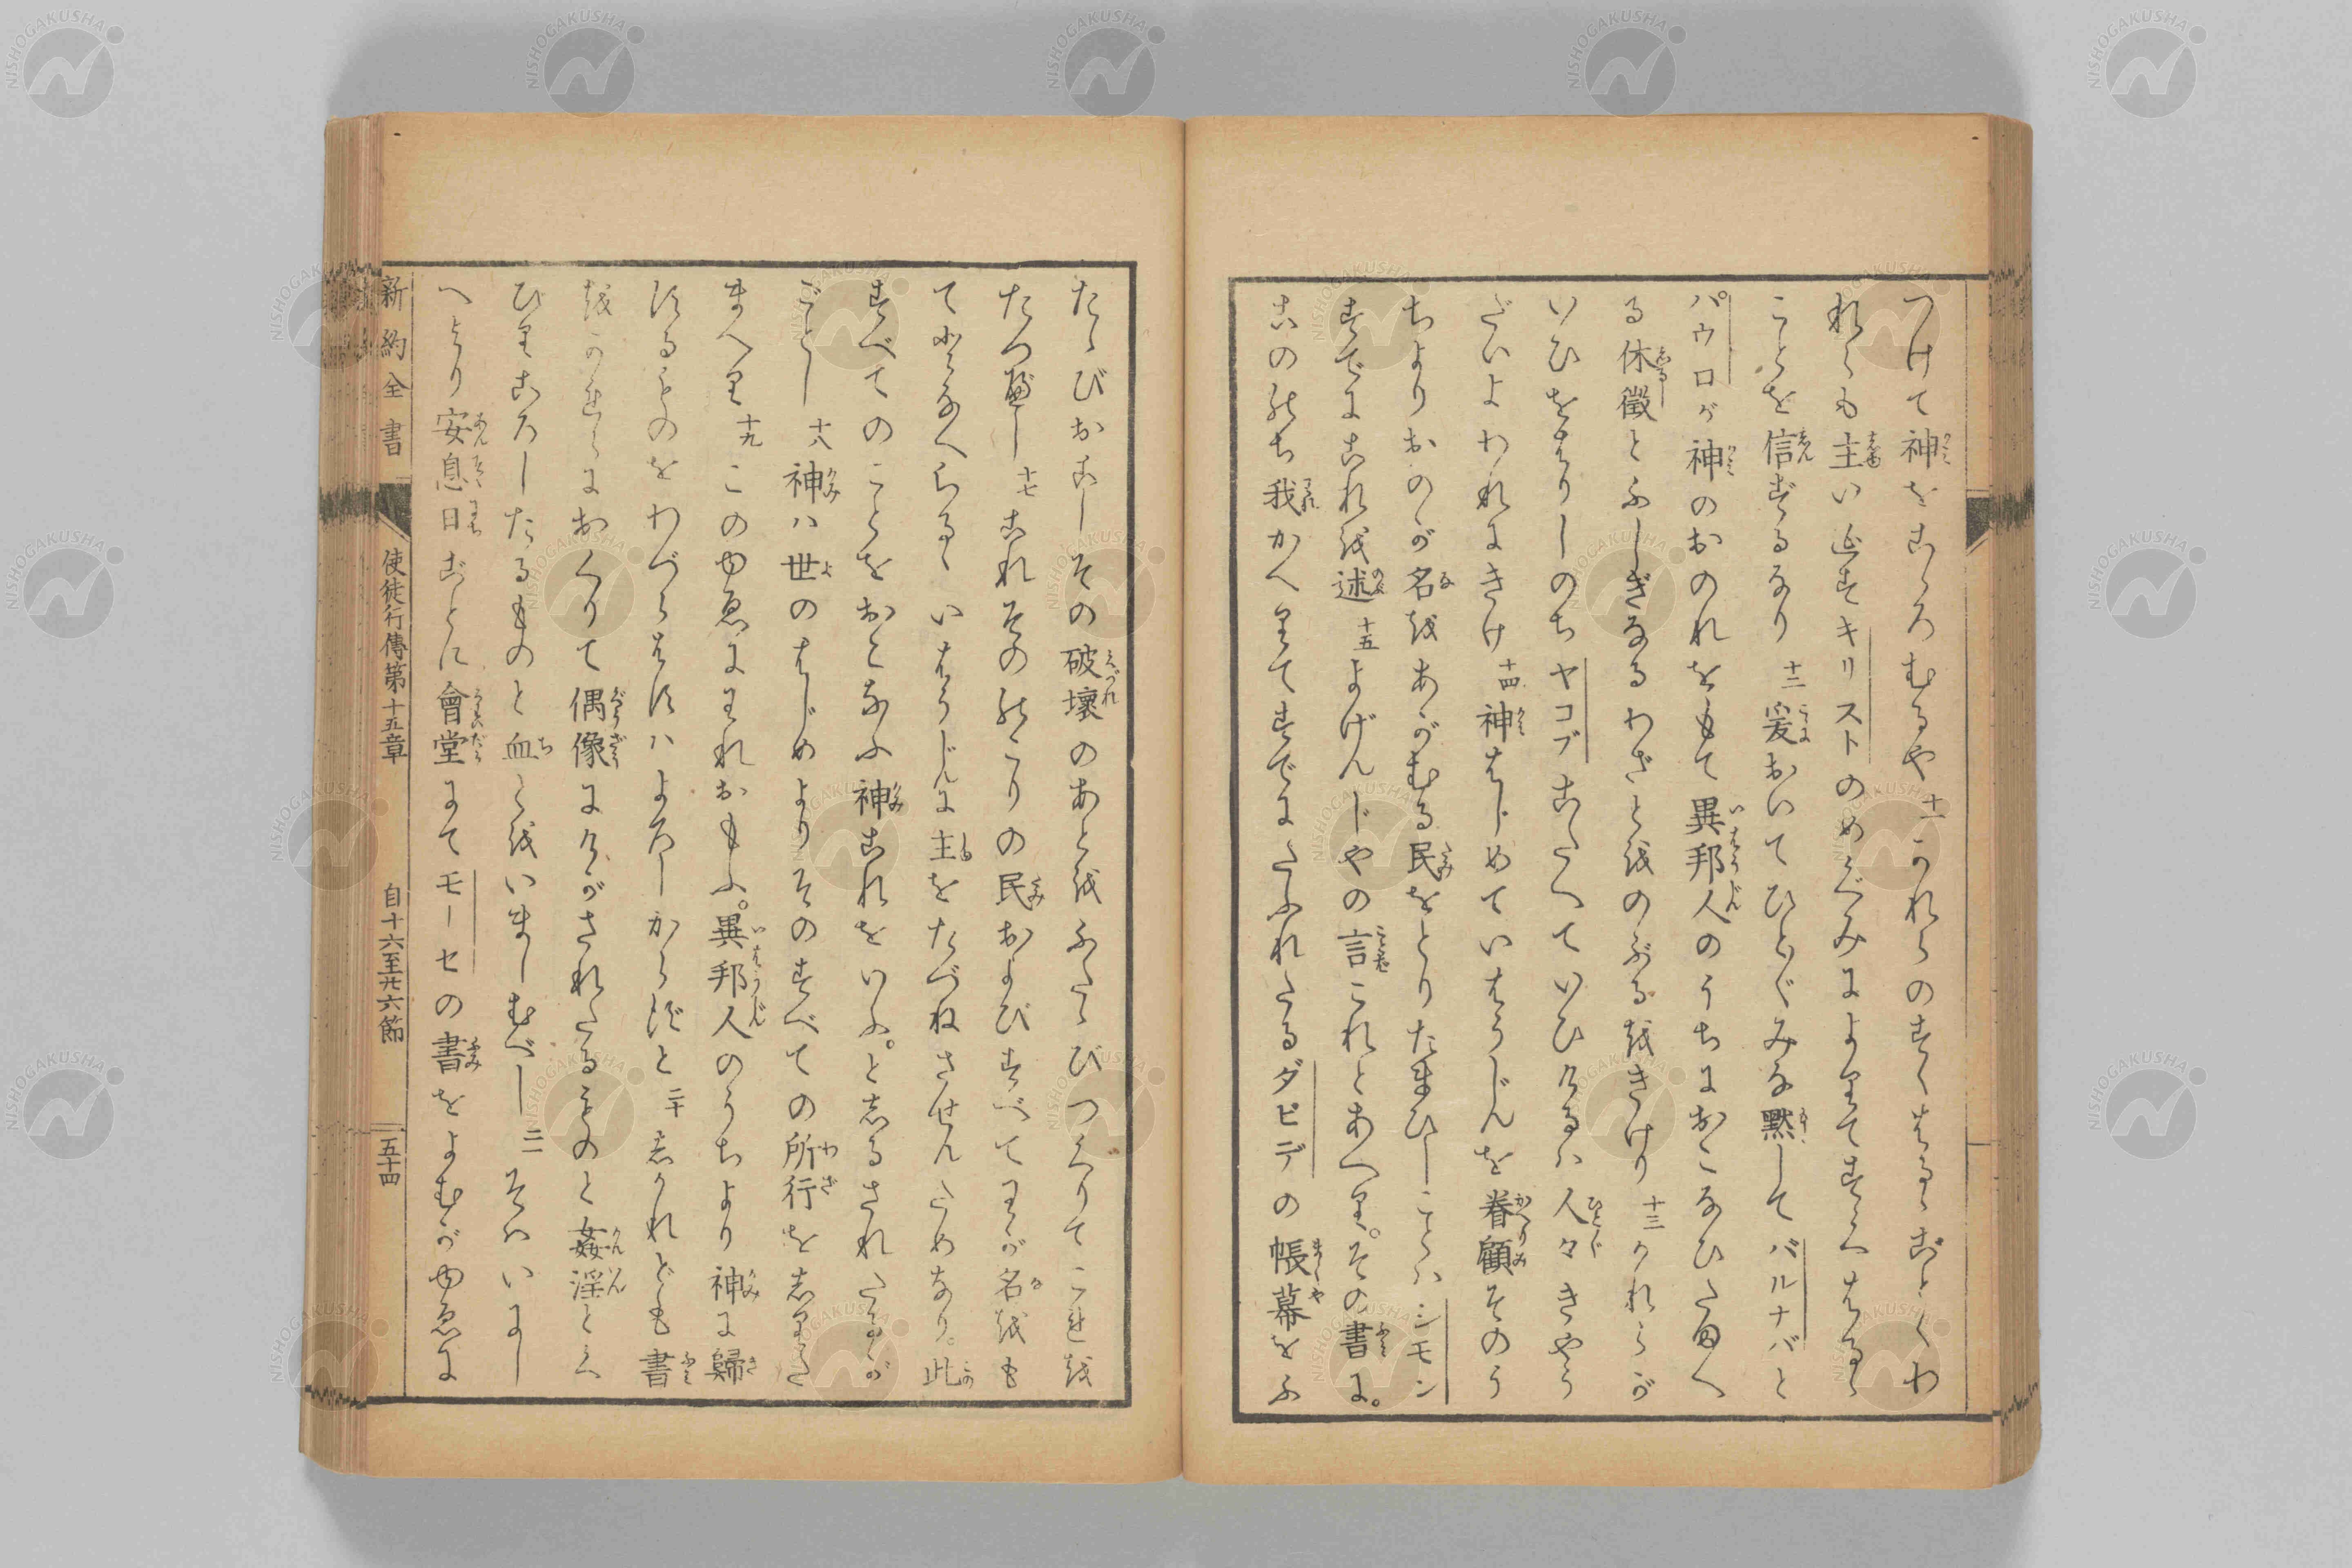 つけて神をこゝろむるや 十一 かれらのすくはるゝごとくわ
れらも主いえすキリストのめぐみによりてすくはるゝ
ことを信ずるなり 十二 爰おいてひと〴〵みな黙してバルナバと
パウロが神のおのれをもて異邦人のうちにおこなひたまへ
る休徴とふしぎなるわざとをのぶるをきけり 十三 かれらが
いひをはりしのちヤコブこたへていひけるハ人々きやう
だいよわれにきけ 十四 神はじめていはうじんを眷顧そのう
ちよりおのが名をあがむる民をとりたまひしことハシモン
すでにこれを述 十五 よげんじやの言これとあへり。その書に。
このゝち我かへりてすでにたふれたるダビデの帳幕をふ
たゝびおこしその破壊のあとをふたゝびつくりてこれを
たつべし 十七 これその のこりの民およびすべてわが名をも
てとなへらるゝいはうじんに主をたづねさせんためなり。此
すべてのことをおこなふ神これをいふ。としるされたるが
ごとし 十八 神ハ世のはじめよりその すべての所行をしりた
まへり 十九 このゆゑにわれおもふ。異邦人のうちより神に歸
するものをわづらはすハよろしからずと 二十 しかれども書
をかれらにおくりて偶像にけがされたるものと姦淫とく
びりころしたるものと血とをいましむべし 二一 そハいにし
へより安息日ごとに會堂にてモーセの書をよむがゆゑに
新約全書 使徒行傳第十五章 自十六至廿六節 五十四
NISHOGAKUSHA